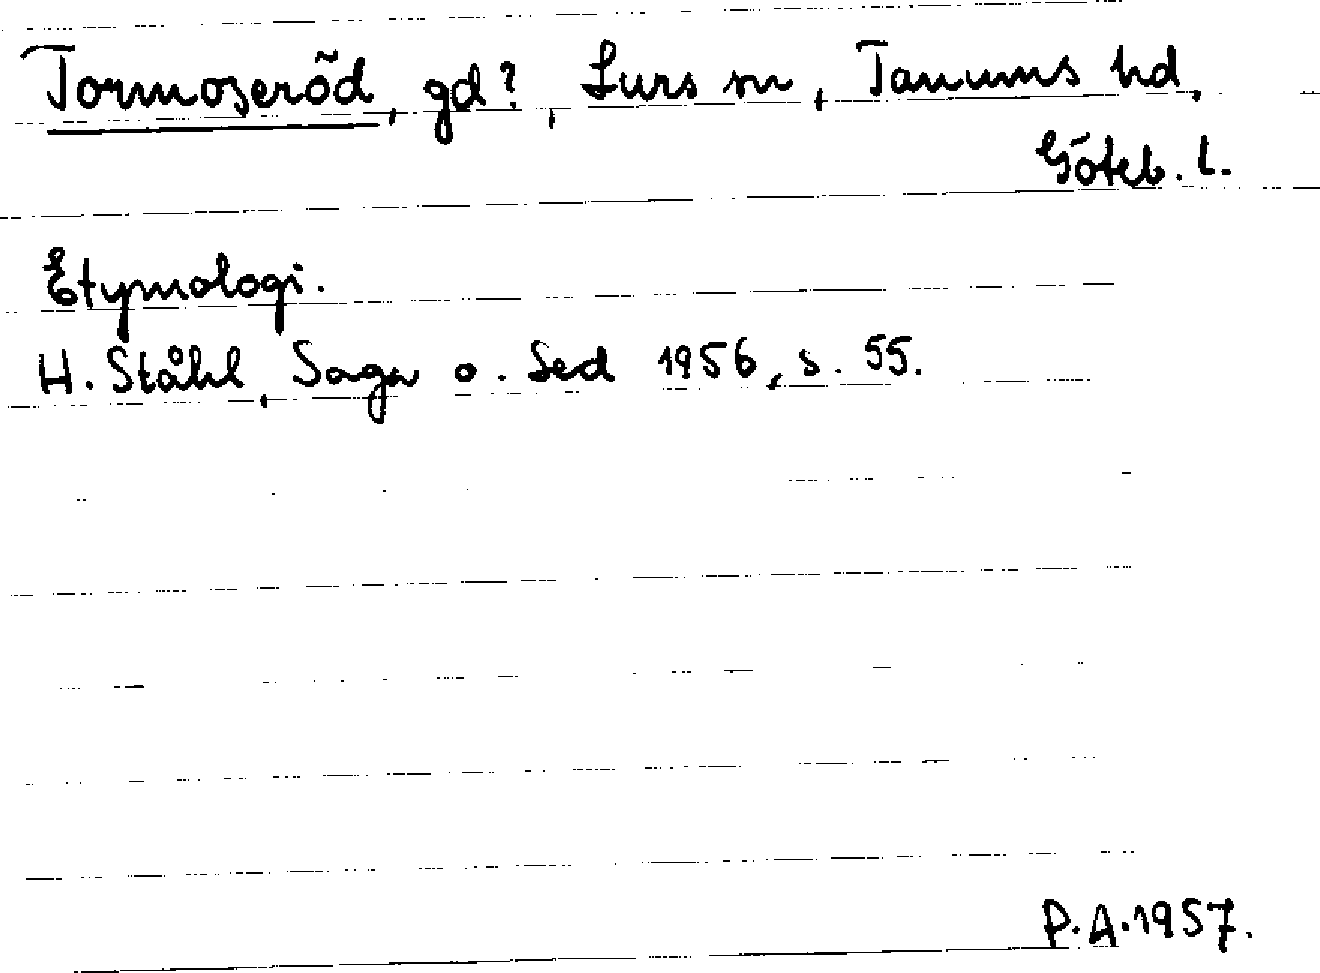 Tormoseröd, gd?, Lurs sn, Tanums hd,
Göteb. l.
Etymologi.
H. Ståhl, Saga o. Sed 1956, s. 55.
P.A. 1957.